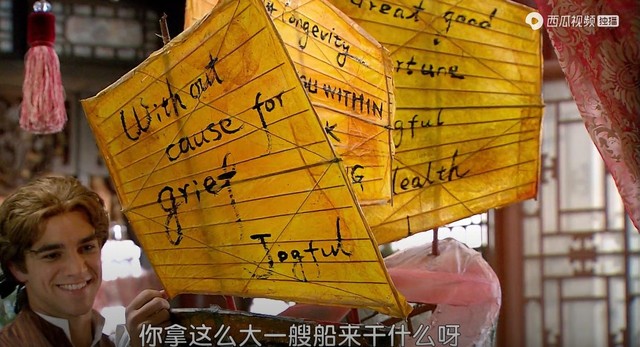 西瓜视频 独播
Longevity
YOU WITHIN
K
NG
Great good
rtune
gful
Health
Without
cause for
grief
Jogful
你拿这么大一艘船来干什么呀